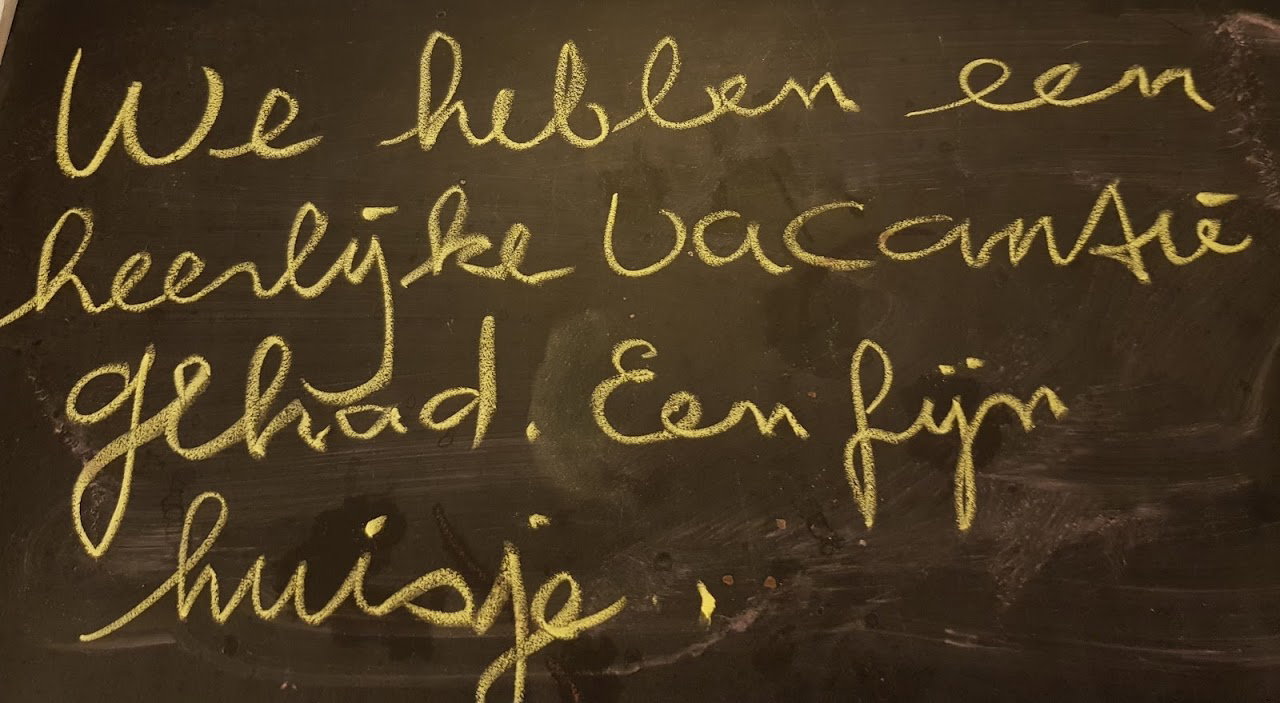 We hebben een
heerlijke vacantie
gehad. Een fijn
huisje.